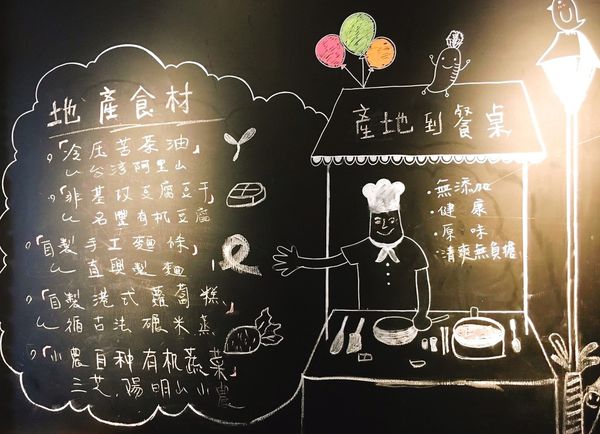 地產食材
「冷压苦茶油」
台湾阿里山
「非基改豆腐豆干」
名豐有机豆腐
「自製手工麵條」
直興製麵
「自製港式蘿蔔糕」
循古法碾米蒸
「小農自种有机蔬菜」
三芝.陽明山小農
產地到餐桌
·無添加
·健康
·原味
·清爽無負擔